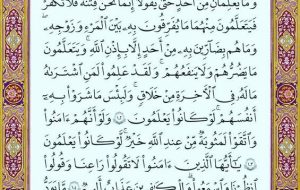 وَمَا يُعَلِّمَانِ مِنْ أَحَدٍ حَتَّىٰ يَقُولَا إِنَّمَا نَحْنُ فِتْنَةٌ فَلَا تَكْفُرْ
فَيَتَعَلَّمُونَ مِنْهُمَا مَا يُفَرِّقُونَ بِهِۦ بَيْنَ ٱلْمَرْءِ وَزَوْجِهِۦ
وَمَا هُم بِضَآرِّينَ بِهِۦ مِنْ أَحَدٍ إِلَّا بِإِذْنِ ٱللَّهِ وَيَتَعَلَّمُونَ
مَا يَضُرُّهُمْ وَلَا يَنفَعُهُمْ وَلَقَدْ عَلِمُوا۟ لَمَنِ ٱشْتَرَىٰهُ
مَا لَهُۥ فِى ٱلْءَاخِرَةِ مِنْ خَلَٰقٍ وَلَبِئْسَ مَا شَرَوْا۟ بِهِۦٓ
أَنفُسَهُمْ لَوْ كَانُوا۟ يَعْلَمُونَ ۝ وَلَوْ أَنَّهُمْ ءَامَنُوا۟
وَٱتَّقَوْا۟ لَمَثُوبَةٌ مِّنْ عِندِ ٱللَّهِ خَيْرٌ لَّوْ كَانُوا۟ يَعْلَمُونَ
۝ يَٰٓأَيُّهَا ٱلَّذِينَ ءَامَنُوا۟ لَا تَقُولُوا۟ رَٰعِنَا وَقُولُوا۟